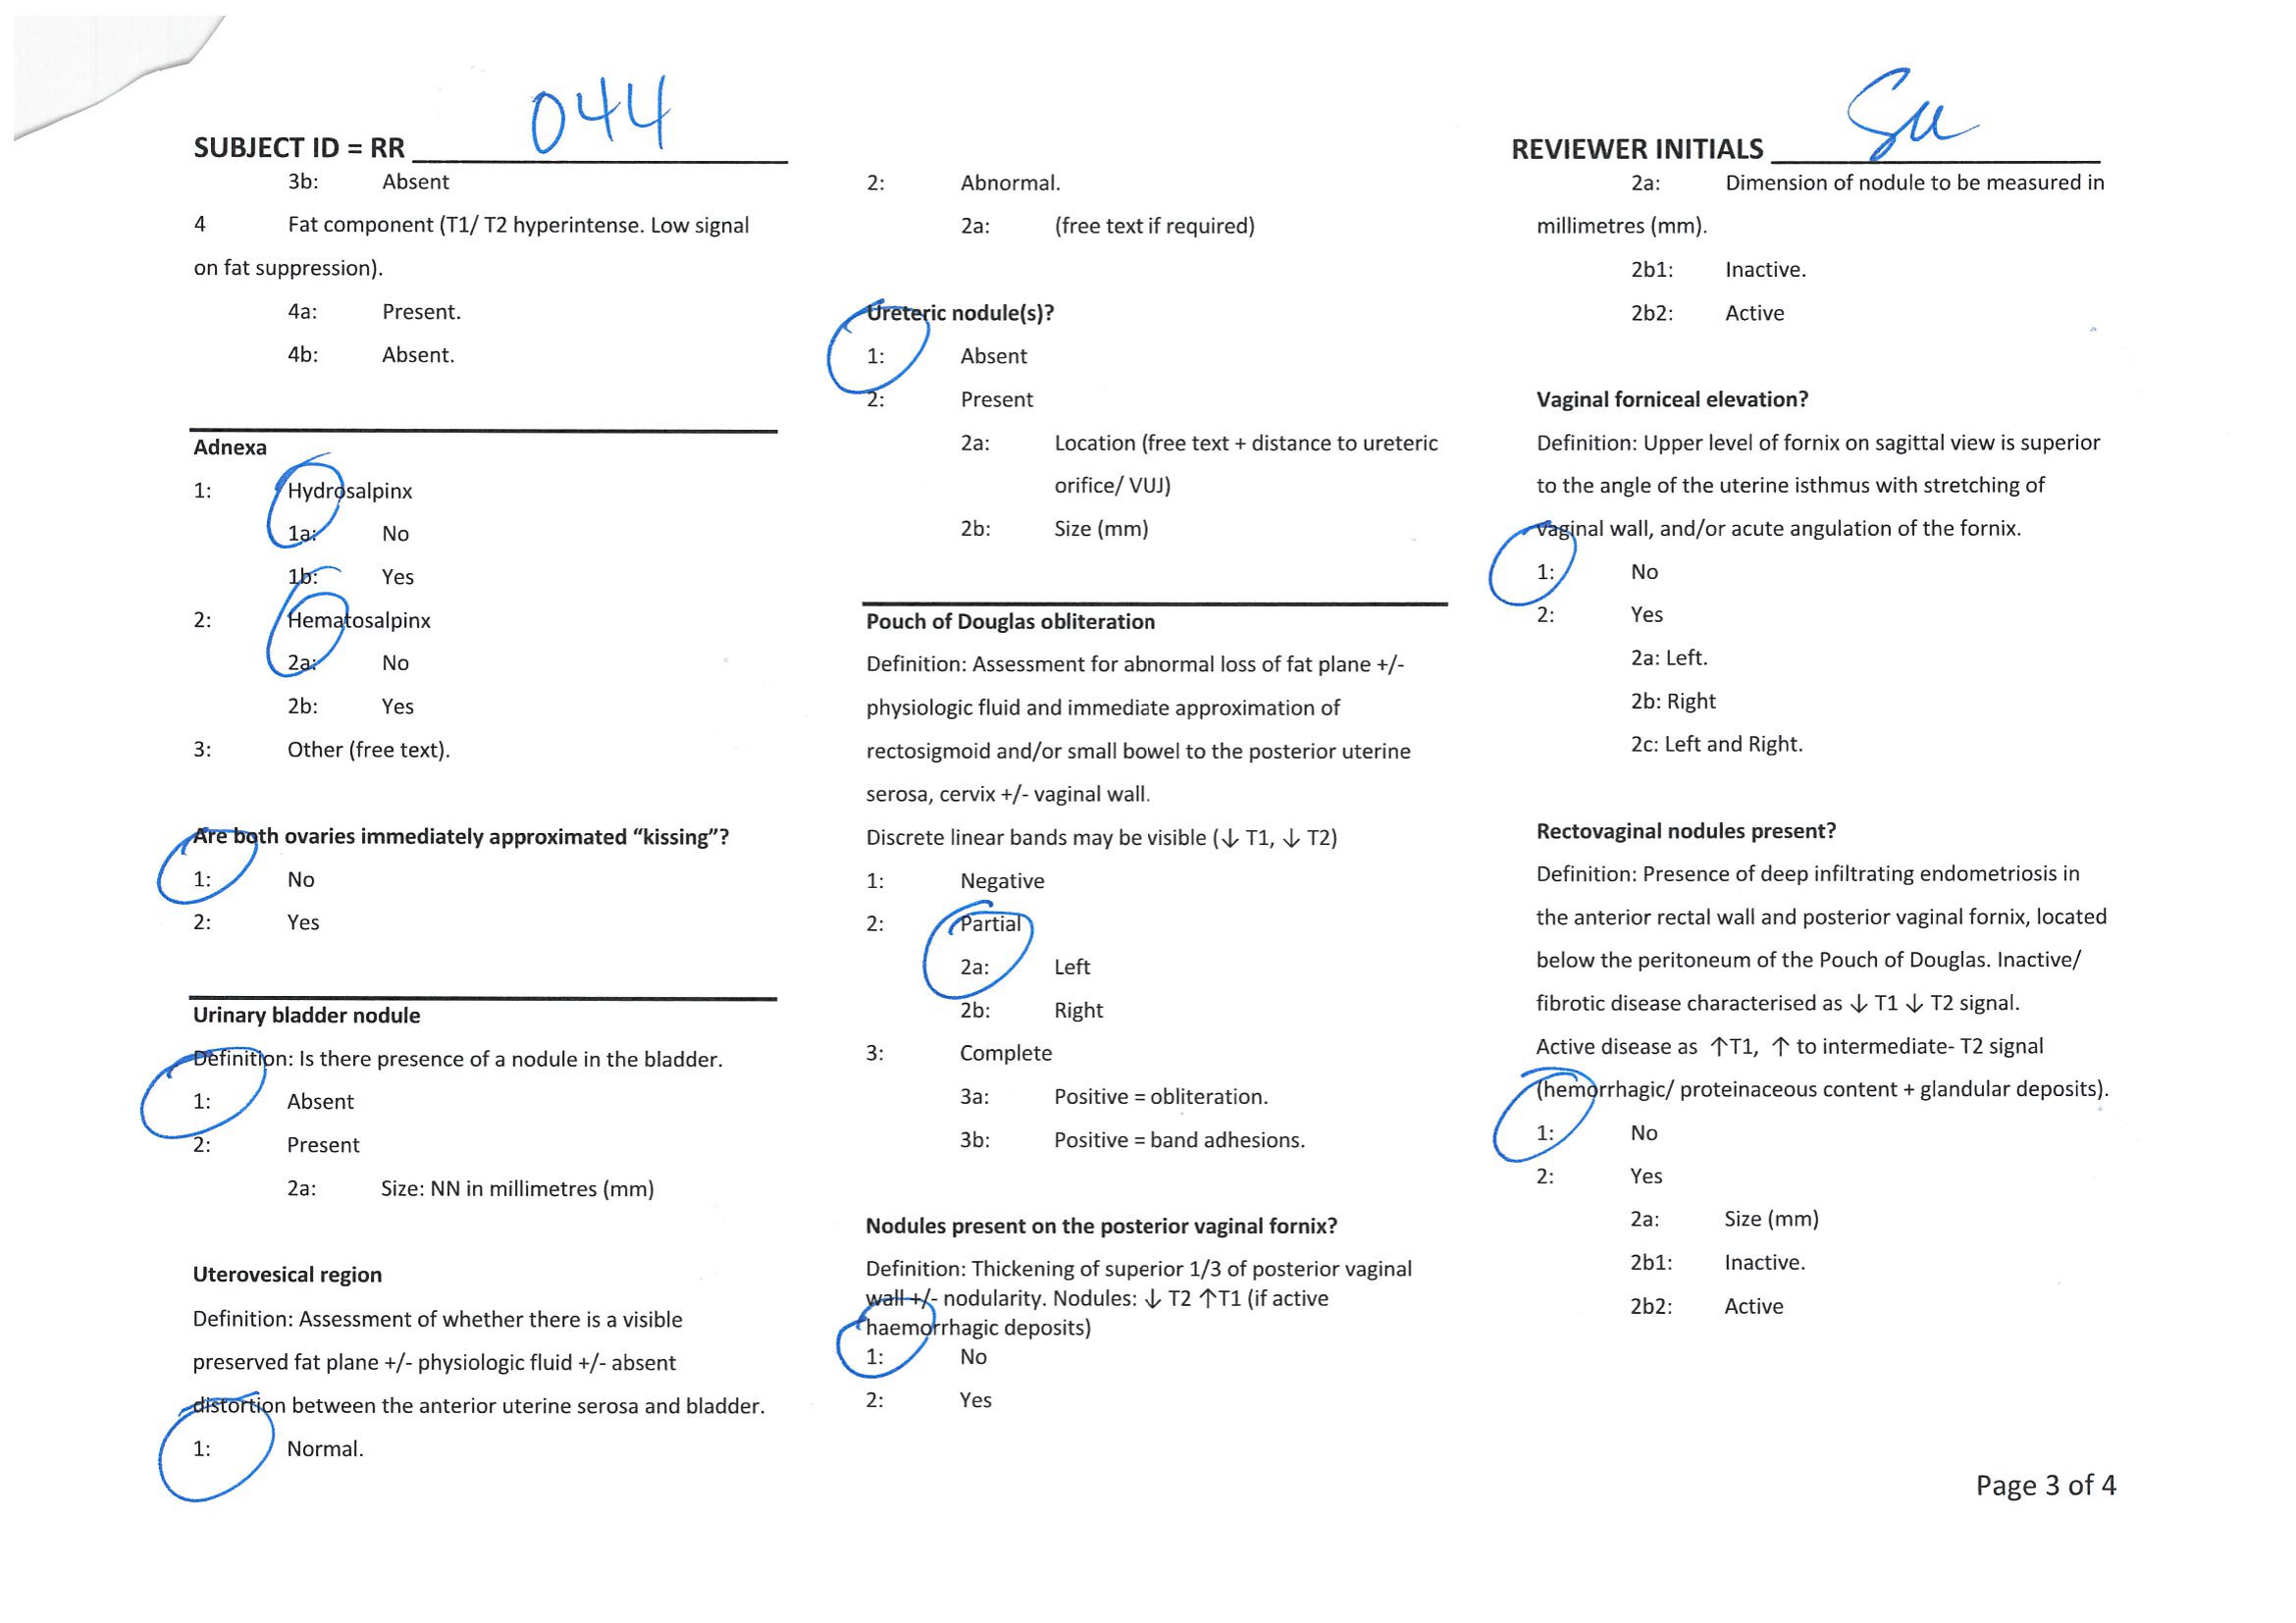 SUBJECT ID = RR 044
3b: Absent
4 Fat component (T1/ T2 hyperintense. Low signal
on fat suppression).
4a: Present.
4b: Absent.
Adnexa
1: Hydrosalpinx
1a: No
1b: Yes
2: Hematosalpinx
2a: No
2b: Yes
3: Other (free text).
Are both ovaries immediately approximated “kissing”?
1: No
2: Yes
Urinary bladder nodule
Definition: Is there presence of a nodule in the bladder.
1: Absent
2: Present
2a: Size: NN in millimetres (mm)
Uterovesical region
Definition: Assessment of whether there is a visible
preserved fat plane +/- physiologic fluid +/- absent
distortion between the anterior uterine serosa and bladder.
1: Normal.
2: Abnormal.
2a: (free text if required)
Ureteric nodule(s)?
1: Absent
2: Present
2a: Location (free text + distance to ureteric
orifice/ VUJ)
2b: Size (mm)
Pouch of Douglas obliteration
Definition: Assessment for abnormal loss of fat plane +/-
physiologic fluid and immediate approximation of
rectosigmoid and/or small bowel to the posterior uterine
serosa, cervix +/- vaginal wall.
Discrete linear bands may be visible (↓ T1, ↓ T2)
1: Negative
2: Partial
2a: Left
2b: Right
3: Complete
3a: Positive = obliteration.
3b: Positive = band adhesions.
Nodules present on the posterior vaginal fornix?
Definition: Thickening of superior 1/3 of posterior vaginal
wall +/- nodularity. Nodules: ↓ T2 ↑T1 (if active
haemorrhagic deposits)
1: No
2: Yes
REVIEWER INITIALS
2a: Dimension of nodule to be measured in
millimetres (mm).
2b1: Inactive.
2b2: Active
Vaginal forniceal elevation?
Definition: Upper level of fornix on sagittal view is superior
to the angle of the uterine isthmus with stretching of
vaginal wall, and/or acute angulation of the fornix.
1: No
2: Yes
2a: Left.
2b: Right
2c: Left and Right.
Rectovaginal nodules present?
Definition: Presence of deep infiltrating endometriosis in
the anterior rectal wall and posterior vaginal fornix, located
below the peritoneum of the Pouch of Douglas. Inactive/
fibrotic disease characterised as ↓ T1 ↓ T2 signal.
Active disease as ↑T1, ↑ to intermediate- T2 signal
(hemorrhagic/ proteinaceous content + glandular deposits).
1: No
2: Yes
2a: Size (mm)
2b1: Inactive.
2b2: Active
Page 3 of 4